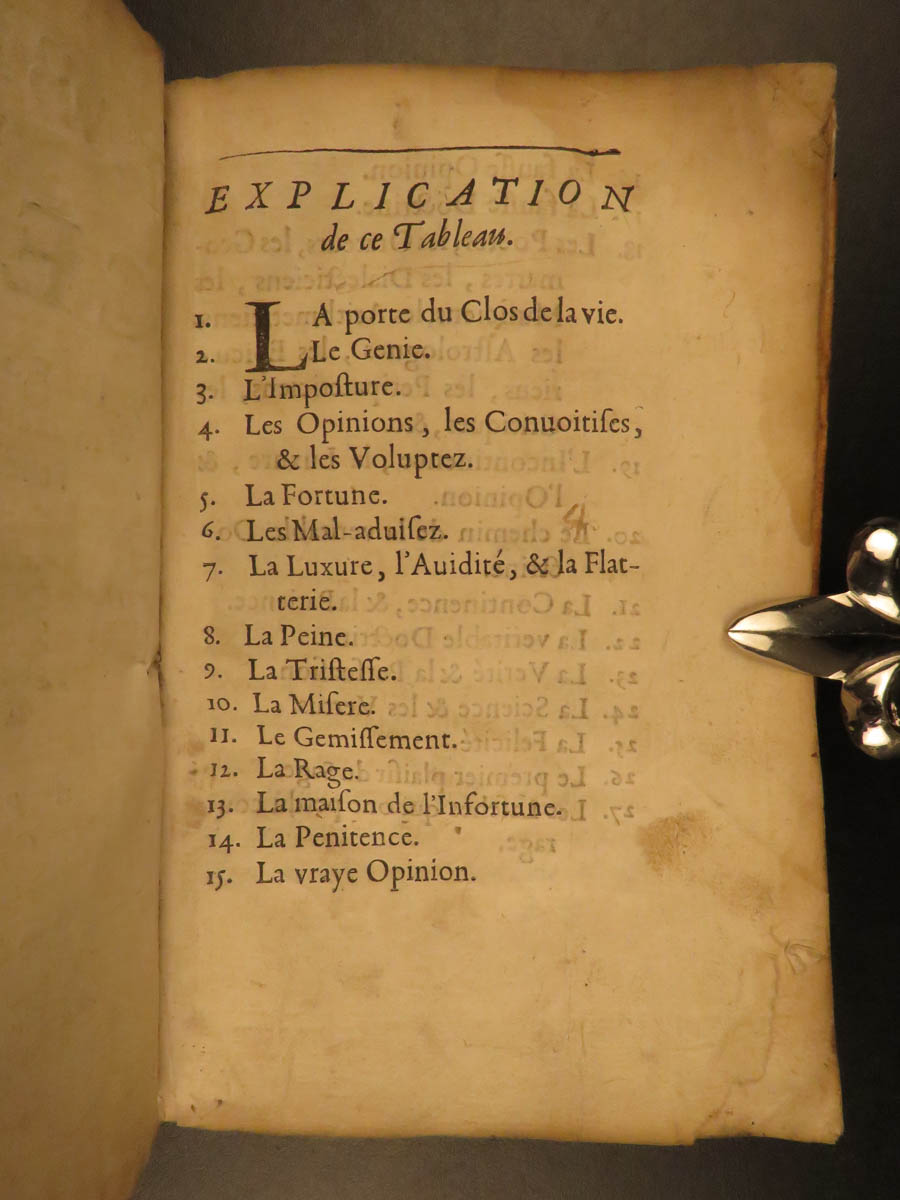 EXPLICATION
de ce Tableau.
1. LA porte du Clos de la vie.
2. Le Genie.
3. L'Impoſture.
4. Les Opinions, les Conuoitiſes,
& les Voluptez.
5. La Fortune.
6. Les Mal-aduiſez.
7. La Luxure, l'Auidité, & la Flat-
terie.
8. La Peine.
9. La Triſteſſe.
10. La Miſere.
11. Le Gemiſſement.
12. La Rage.
13. La maiſon de l'Infortune.
14. La Penitence.
15. La vraye Opinion.